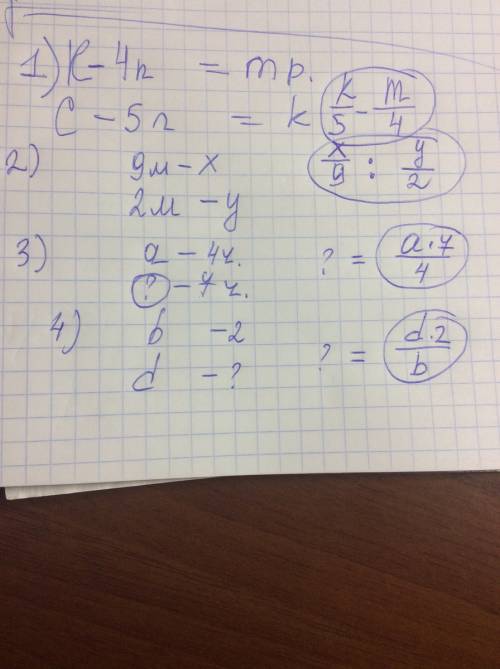 1) К - 4п = m р.
С - 5п = k k/5 - m/4
2) 9м - x x/9 : y/2
2м - y
3) a - 4ч. ? = a·7/4
? - 7ч.
4) b - 2 ? = d·2/b
d - ?